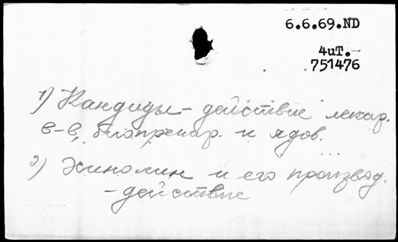 6.6.69.ND
4uT.-
751476
1) Кандиды - действие лекар.
в-в, биопрепар. и ядов.
2) Хинолин и его производ.
- действие